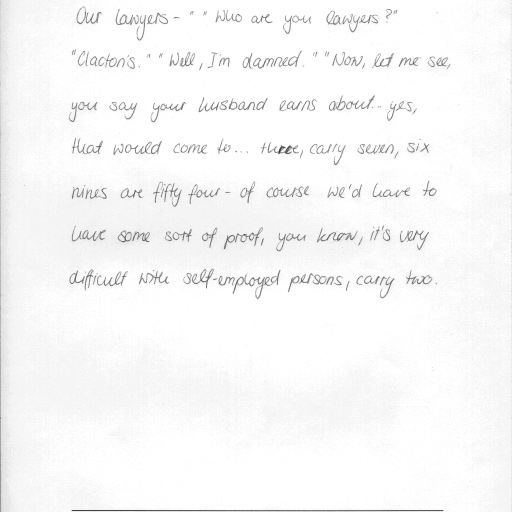 Our lawyers - " " Who are you lawyers?"
"Clacton's." " Well, I'm damned. " " Now, let me see,
you say your husband earns about.. yes,
that would come to... three, carry seven, six
nines are fifty four - of course we'd have to
have some sort of proof, you know, it's very
difficult with self-employed persons, carry two.